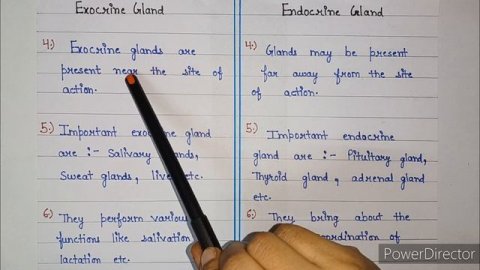 Exocrine Gland
4.) Exocrine glands are
present near the site of
action.
5.) Important gland
are :- Salivary
Sweat glands, etc.
6.) They perform
functions like salivation
lactation etc.
Endocrine Gland
4.) Glands may be present
far away from the site
of action.
5.) Important endocrine
gland are :- Pituitary gland,
Thyroid gland, adrenal gland
etc.
6.) They bring about the
of
PowerDirector